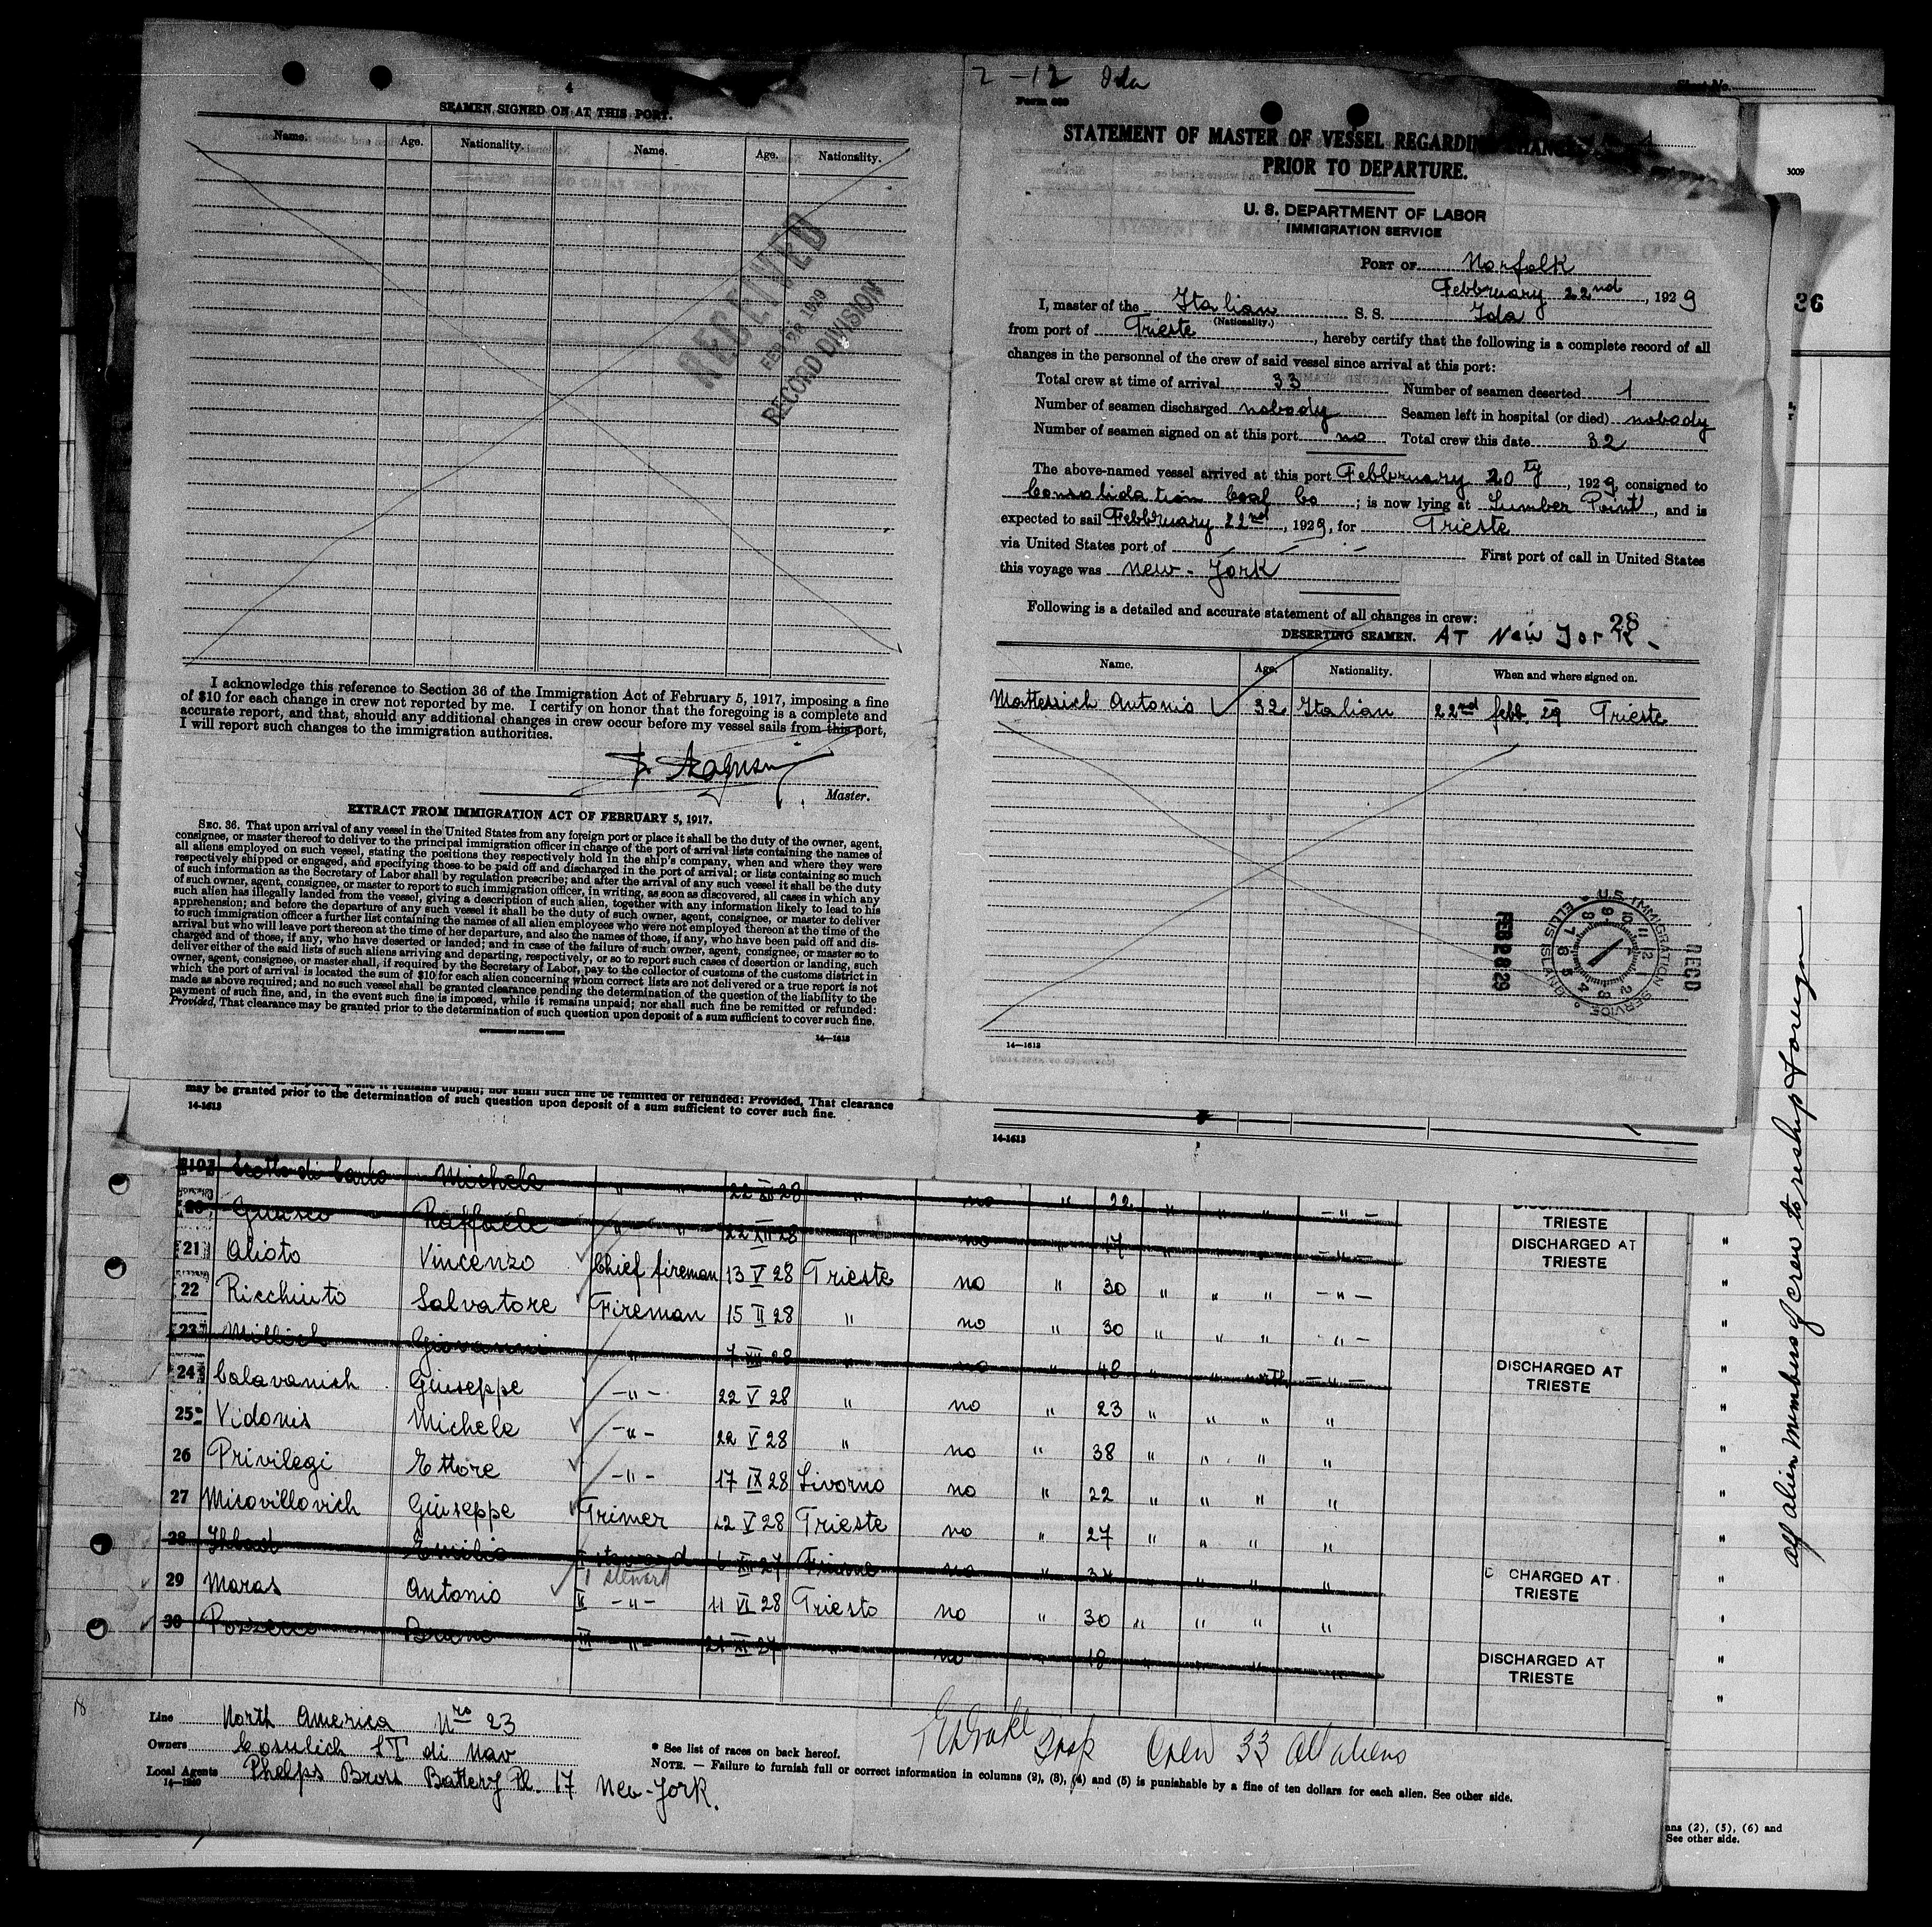 4
SEAMEN SIGNED ON AT THIS PORT.
Name. Age. Nationality. Name. Age. Nationality.
RECEIVED
FEB 26 1929
RECORD DIVISION
I acknowledge this reference to Section 36 of the Immigration Act of February 5, 1917, imposing a fine
of $10 for each change in crew not reported by me. I certify on honor that the foregoing is a complete and
accurate report, and that, should any additional changes in crew occur before my vessel sails from this port,
I will report such changes to the immigration authorities.
Master.
EXTRACT FROM IMMIGRATION ACT OF FEBRUARY 5, 1917.
SEC. 36. That upon arrival of any vessel in the United States from any foreign port or place it shall be the duty of the owner, agent,
consignee, or master thereof to deliver to the principal immigration officer in charge of the port of arrival lists containing the names of
all aliens employed on such vessel, stating the positions they respectively hold in the ship's company, when and where they were
respectively shipped or engaged, and specifying those to be paid off and discharged in the port of arrival; or lists containing so much
of such information as the Secretary of Labor shall by regulation prescribe; and after the arrival of any such vessel it shall be the duty
of such owner, agent, consignee, or master to report to such immigration officer, in writing, as soon as discovered, all cases in which any
such alien has illegally landed from the vessel, giving a description of such alien, together with any information likely to lead to his
apprehension; and before the departure of any such vessel it shall be the duty of such owner, agent, consignee, or master to deliver
to such immigration officer a further list containing the names of all alien employees who were not employed thereon at the time of the
arrival but who will leave port thereon at the time of her departure, and also the names of those, if any, who have been paid off and dis-
charged and of those, if any, who have deserted or landed; and in case of the failure of such owner, agent, consignee, or master so to
deliver either of the said lists of such aliens arriving and departing, respectively, or so to report such cases of desertion or landing, such
owner, agent, consignee, or master shall, if required by the Secretary of Labor, pay to the collector of customs of the customs district in
which the port of arrival is located the sum of $10 for each alien concerning whom correct lists are not delivered or a true report is not
made as above required; and no such vessel shall be granted clearance pending the determination of the question of the liability to the
payment of such fine, and, in the event such fine is imposed, while it remains unpaid; nor shall such fine be remitted or refunded:
Provided, That clearance may be granted prior to the determination of such question upon deposit of a sum sufficient to cover such fine.
GOVERNMENT PRINTING OFFICE
14—1613
2 - 12 Ida
Form 689
STATEMENT OF MASTER OF VESSEL REGARDING CHANGES
PRIOR TO DEPARTURE.
U. S. DEPARTMENT OF LABOR
IMMIGRATION SERVICE
PORT OF Norfolk
Febbruary 22nd, 1929
I, master of the Italian S. S. Ida
(Nationality.)
from port of Trieste, hereby certify that the following is a complete record of all
changes in the personnel of the crew of said vessel since arrival at this port:
Total crew at time of arrival 33 Number of seamen deserted 1
Number of seamen discharged nobody Seamen left in hospital (or died) nobody
Number of seamen signed on at this port no Total crew this date 32
The above-named vessel arrived at this port Febbruary 20ty, 1929 consigned to
Consolidation Coal Co; is now lying at Lumber Point, and is
expected to sail Febbruary 22nd, 1929, for Trieste
via United States port of First port of call in United States
this voyage was New-York
Following is a detailed and accurate statement of all changes in crew:
28
DESERTING SEAMEN. AT New York -
Name. Age. Nationality. When and where signed on.
Mattessich Antonio 32 Italian 22nd febb. 29 Trieste
U.S. IMMIGRATION SERVICE
ELLIS ISLAND
FEB 28 29
RECD
14—1613
Sheet No.
3009
36
while it remains unpaid; nor shall such fine be remitted or refunded: Provided, That clearance
may be granted prior to the determination of such question upon deposit of a sum sufficient to cover such fine.
14-1613
14-1613
19 Scotto di Carlo Michele " " 22 XII 28 " no " 22 " " " -"-
20 Guasco Raffaele " " 22 XII 28 " no " 17 " " " -"- TRIESTE
21 Alioto Vincenzo Chief fireman 13 V 28 Trieste no " 30 " " " -"- DISCHARGED AT TRIESTE
22 Ricchiuto Salvatore Fireman 15 II 28 " no " 30 " " " -"-
23 Millich Giovanni " 7 XII 28 " no " 48 " " -"- DISCHARGED AT TRIESTE
24 Calavanich Giuseppe -"- 22 V 28 " no " 23 " " " "
25 Vidonis Michele -"- 22 V 28 " no " 38 " " " "
26 Privilegi Ettore -"- 17 IX 28 Livorno no " 22 " " " "
27 Micovillovich Giuseppe Trimer 22 V 28 Trieste no " 27 " " " "
28 Emilio I steward 6 XII 27 Fiume no " 34 " " " " CHARGED AT TRIESTE
I steward
29 Maras Antonio II -"- 11 VI 28 Triesto no " 30 " " " "
30 Pozzecco Bruno III -"- 21 XI 27 " no " 18 " " " " DISCHARGED AT TRIESTE
18
Line North America Nro 23
Owners Cosulich ST di Nav
Local Agents Phelps Bross Battery Pl. 17 New-York.
* See list of races on back hereof.
NOTE. — Failure to furnish full or correct information in columns (9), (8), (4) and (5) is punishable by a fine of ten dollars for each alien. See other side.
Insp Crew 33 all aliens
All alien members of crew to reship foreign
(2), (5), (6) and
See other side.